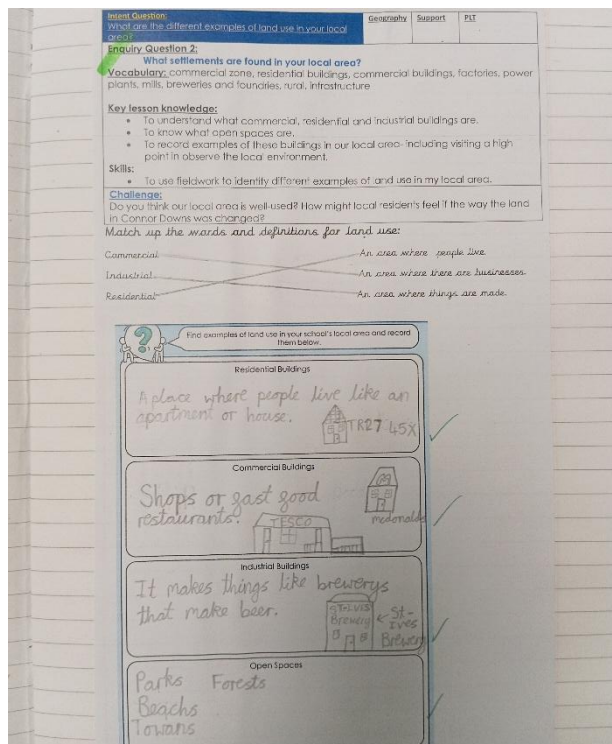 Intent Question:
What are the different examples of land use in your local
area?
Geography
Support
PLT
Enquiry Question 2:
What settlements are found in your local area?
Vocabulary: commercial zone, residential buildings, commercial buildings, factories, power
plants, mills, breweries and foundries, rural, infrastructure
Key lesson knowledge:
• To understand what commercial, residential and industrial buildings are.
• To know what open spaces are.
• To record examples of these buildings in our local area- including visiting a high
point in observe the local environment.
Skills:
• To use fieldwork to identify different examples of land use in my local area.
Challenge:
Do you think our local area is well-used? How might local residents feel if the way the land
in Connor Downs was changed?
Match up the words and definitions for land use:
Commercial
An area where people live.
Industrial
An area where there are businesses.
Residential
An area where things are made.
?
Find examples of land use in your school's local area and record
them below.
Residential Buildings
A place where people live like an
apartment or house.
TR27 45X
Commercial Buildings
Shops or fast food
restaurants.
TESCO
mcdonalds
Industrial Buildings
It makes things like brewerys
that make beer.
St-IVES
Brewery
St-
Ives
Brewery
Open Spaces
Parks Forests
Beachs
Towans